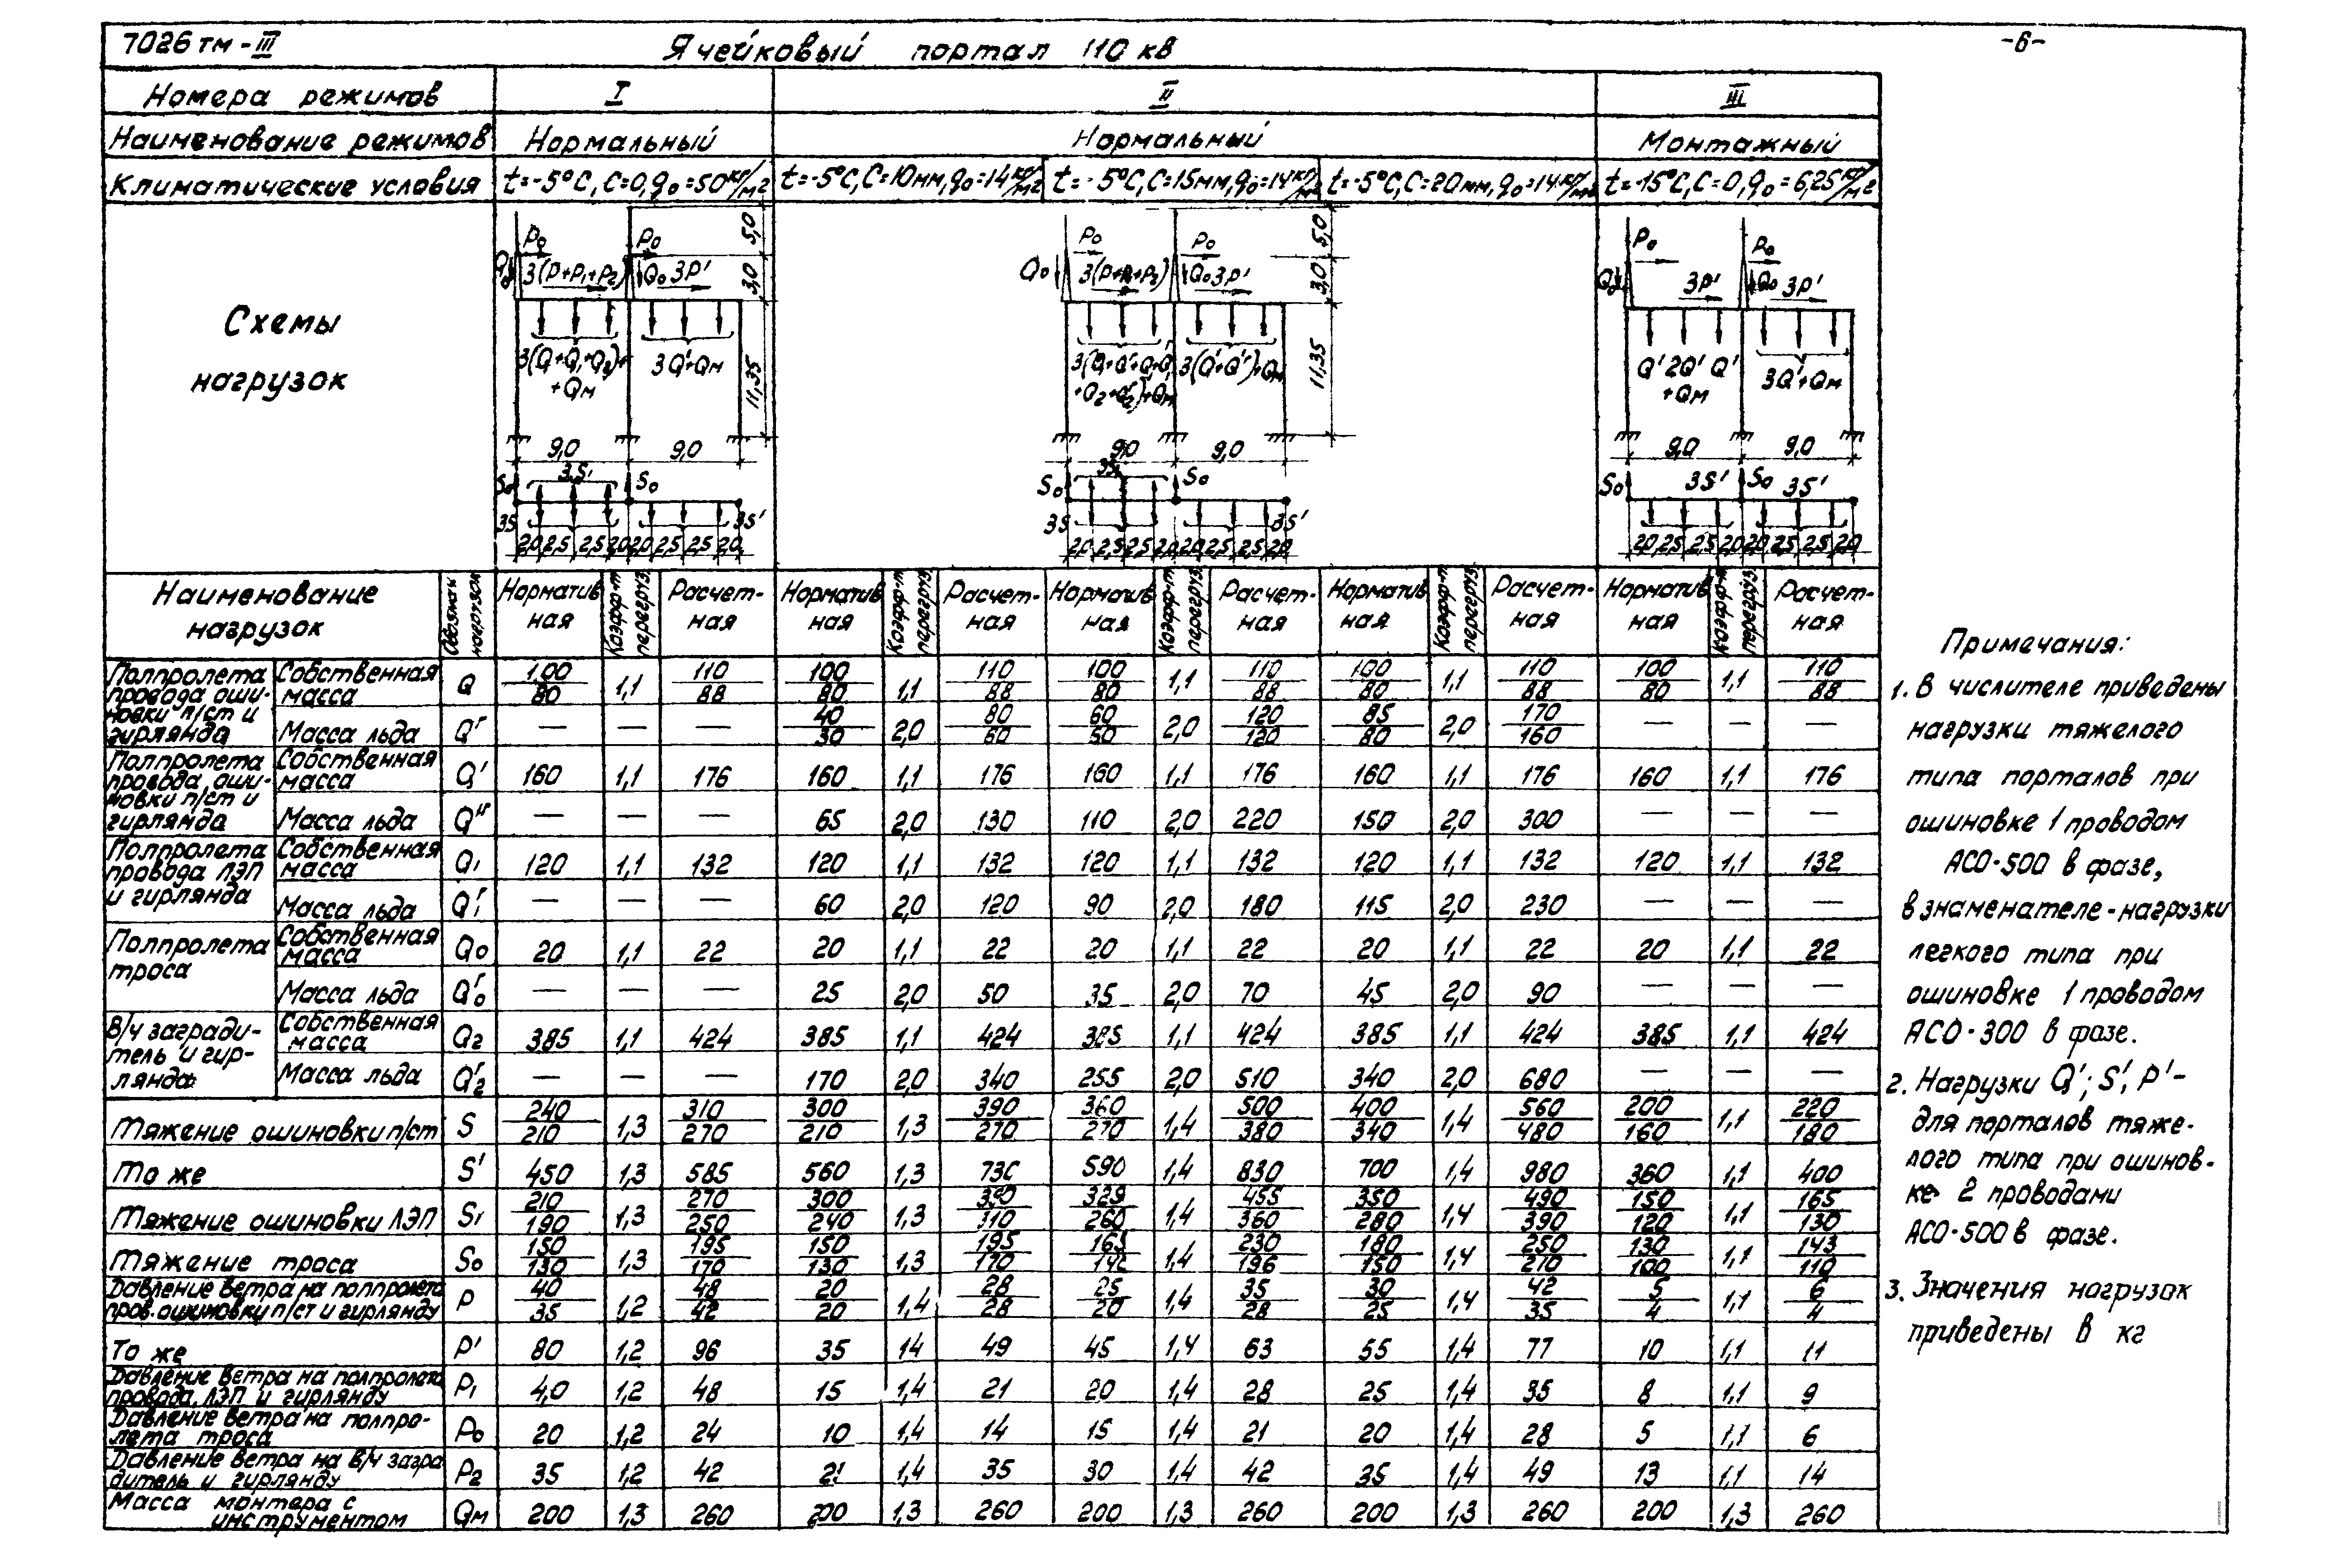 7026 тм - III Ячейковый портал 110 кв -6-
Номера режимов I II III
Наименование режимов Нормальный Нормальный Монтажный
Климатические условия t=-5°C, C=0, q₀=50 кг/м² t=-5°C, C=10мм, q₀=14 кг/м² t=-5°C, C=15мм, q₀=14 кг/м² t=-5°C, C=20мм, q₀=14 кг/м² t=-15°C, C=0, q₀=6,25 кг/м²
Схемы
нагрузок
P₀ P₀ 5,0
Q₀ 3(P+P₁+P₂) Q₀ 3P' 3,0
3(Q+Q₁+Q₂)+ 3Q'+Qм 11,35
+Qм
9,0 9,0
S₀ 3S₁ S₀
3S 3S'
2,0 2,5 2,5 2,0 2,0 2,5 2,5 2,0
P₀ P₀ 5,0
Q₀ Q₀ 3P' 3,0
3(Q'+Q'ʳ)+Qм 11,35
9,0 9,0
S₀ S₀
3S 3S'
2,0 2,5 2,5 2,0 2,0 2,5 2,5 2,0
P₀ P₀
Q₀ 3P' Q₀ 3P'
Q' 2Q' Q' 3Q'+Qм
+Qм
9,0 9,0
S₀ 3S' S₀ 3S'
2,0 2,5 2,5 2,0 2,0 2,5 2,5 2,0
Наименование нагрузок Обознач. нагрузок Норматив ная Коэфф-т перегруз. Расчет- ная Норматив ная Коэфф-т перегруз. Расчет- ная Норматив ная Коэфф-т перегруз. Расчет- ная Норматив ная Коэфф-т перегруз. Расчет- ная Норматив ная Коэфф-т перегруз. Расчет- ная
Полпролета провода оши- новки п/ст и гирлянда Собственная масса Q 100/80 1,1 110/88 100/80 1,1 110/88 100/80 1,1 110/88 100/80 1,1 110/88 100/80 1,1 110/88
Масса льда Qʳ — — — 40/30 2,0 80/60 60/50 2,0 120/120 85/80 2,0 170/160 — — —
Полпролета провода оши- новки п/ст и гирлянда Собственная масса Q' 160 1,1 176 160 1,1 176 160 1,1 176 160 1,1 176 160 1,1 176
Масса льда Q'ʳ — — — 65 2,0 130 110 2,0 220 150 2,0 300 — — —
Полпролета провода ЛЭП и гирлянда Собственная масса Q₁ 120 1,1 132 120 1,1 132 120 1,1 132 120 1,1 132 120 1,1 132
Масса льда Q₁ʳ — — — 60 2,0 120 90 2,0 180 115 2,0 230 — — —
Полпролета троса Собственная масса Q₀ 20 1,1 22 20 1,1 22 20 1,1 22 20 1,1 22 20 1,1 22
Масса льда Q₀ʳ — — — 25 2,0 50 35 2,0 70 45 2,0 90 — — —
В/ч загради- тель и гир- лянда Собственная масса Q₂ 385 1,1 424 385 1,1 424 385 1,1 424 385 1,1 424 385 1,1 424
Масса льда Q₂ʳ — — — 170 2,0 340 255 2,0 510 340 2,0 680 — — —
Тяжение ошиновки п/ст S 240/210 1,3 310/270 300/210 1,3 390/270 360/270 1,4 500/380 400/340 1,4 560/480 200/160 1,1 220/180
То же S' 450 1,3 585 560 1,3 730 590 1,4 830 700 1,4 980 360 1,1 400
Тяжение ошиновки ЛЭП S₁ 210/190 1,3 270/250 300/240 1,3 390/310 329/260 1,4 455/360 350/280 1,4 490/390 150/120 1,1 165/130
Тяжение троса S₀ 150/130 1,3 195/170 150/130 1,3 195/170 165/142 1,4 230/196 180/150 1,4 250/210 130/100 1,1 143/110
Давление ветра на полпролета пров. ошиновки п/ст и гирлянду P 40/35 1,2 48/42 20/20 1,4 28/28 25/20 1,4 35/28 30/25 1,4 42/35 5/4 1,1 6/4
То же P' 80 1,2 96 35 14 49 45 1,4 63 55 1,4 77 10 1,1 11
Давление ветра на полпролета провода ЛЭП и гирлянду P₁ 4,0 1,2 48 15 1,4 21 20 1,4 28 25 1,4 35 8 1,1 9
Давление ветра на полпро- лета троса P₀ 20 1,2 24 10 1,4 14 15 1,4 21 20 1,4 28 5 1,1 6
Давление ветра на В/ч загра дитель и гирлянду P₂ 35 1,2 42 21 1,4 35 30 1,4 42 35 1,4 49 13 1,1 14
Масса монтера с инструментом Qм 200 1,3 260 200 1,3 260 200 1,3 260 200 1,3 260 200 1,3 260
Примечания:
1. В числителе приведены
нагрузки тяжелого
типа порталов при
ошиновке 1 проводом
АСО-500 в фазе,
в знаменателе - нагрузки
легкого типа при
ошиновке 1 проводом
АСО-300 в фазе.
2. Нагрузки Q'; S'; P' -
для порталов тяже-
лого типа при ошинов-
ке 2 проводами
АСО-500 в фазе.
3. Значения нагрузок
приведены в кг